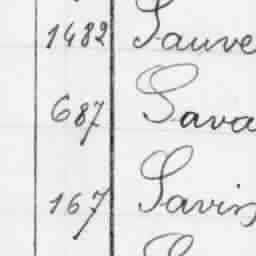 1482 Sauve
687 Sava
167 Savin